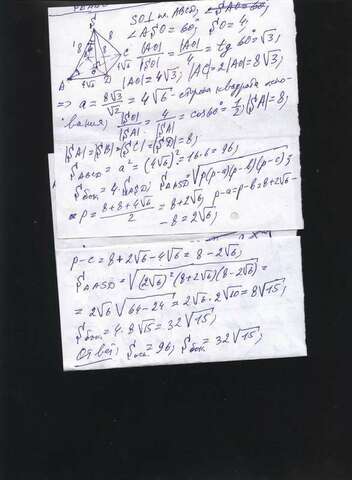 S
SO⊥ пл. ABCD,
∠ASO = 60°, SO = 4,
8 8 8 C 4√6
A 4√6 D
|AO|/|SO| = |AO|/4 = tg 60° = √3;
|AO| = 4√3; |AC| = 2|AO| = 8√3
=> a = 8√3/√2 = 4√6 - сторона квадрата осно-
вания; |SO|/|SA| = 4/|SA| = cos60° = 1/2; |SA| = 8;
|SA| = |SB| = |SC| = |SD| = 8;
S ABCD = a² = (4√6)² = 16·6 = 96;
Sбок = 4·S ASD; S△ASD = √p(p-a)(p-b)(p-c);
p = (8+8+4√6)/2 = 8+2√6; p-a = p-b = 8+2√6 -
- 8 = 2√6;
p-c = 8+2√6-4√6 = 8-2√6;
S△ASD = √(2√6)²(8+2√6)(8-2√6) =
= 2√6 √64-24 = 2√6·2√10 = 8√15;
Sбок = 4·8√15 = 32√15;
Ответ: Sосн = 96; Sбок = 32√15;